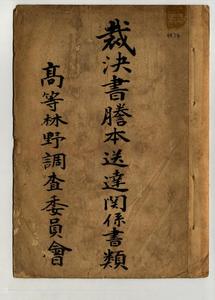 裁決書謄本送達関係書類
高等林野調査委員會